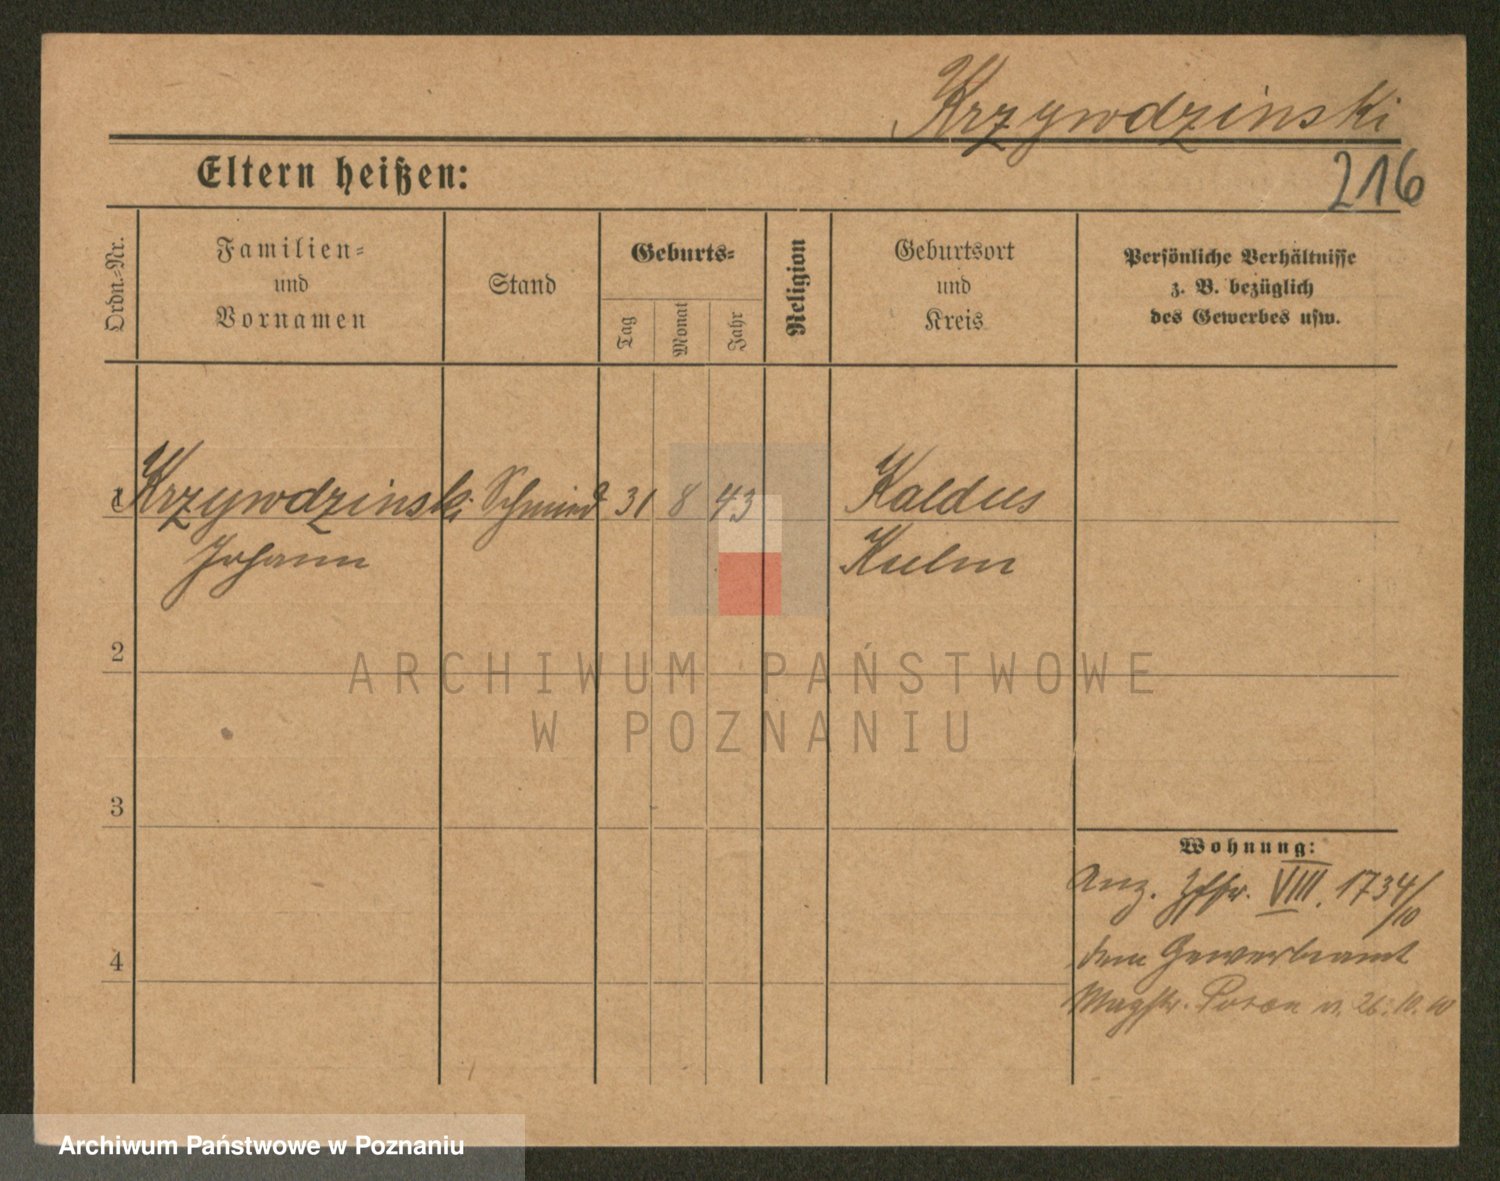 Krzywdzinski
216
Eltern heißen:
Ordn.-Nr.
Familien-
und
Vornamen
Stand
Geburts-
Tag
Monat
Jahr
Religion
Geburtsort
und
Kreis
Persönliche Verhältnisse
z. B. bezüglich
des Gewerbes usw.
1 Krzywdzinski Schmied 31 8 43 Kaldus
Johann Kulm
2
ARCHIWUM PAŃSTWOWE
W POZNANIU
3
Wohnung:
Anz. VIII. 1734/10
4
dem Gewerbeamt
Magistr. Posen v. 26.10.10
Archiwum Państwowe w Poznaniu